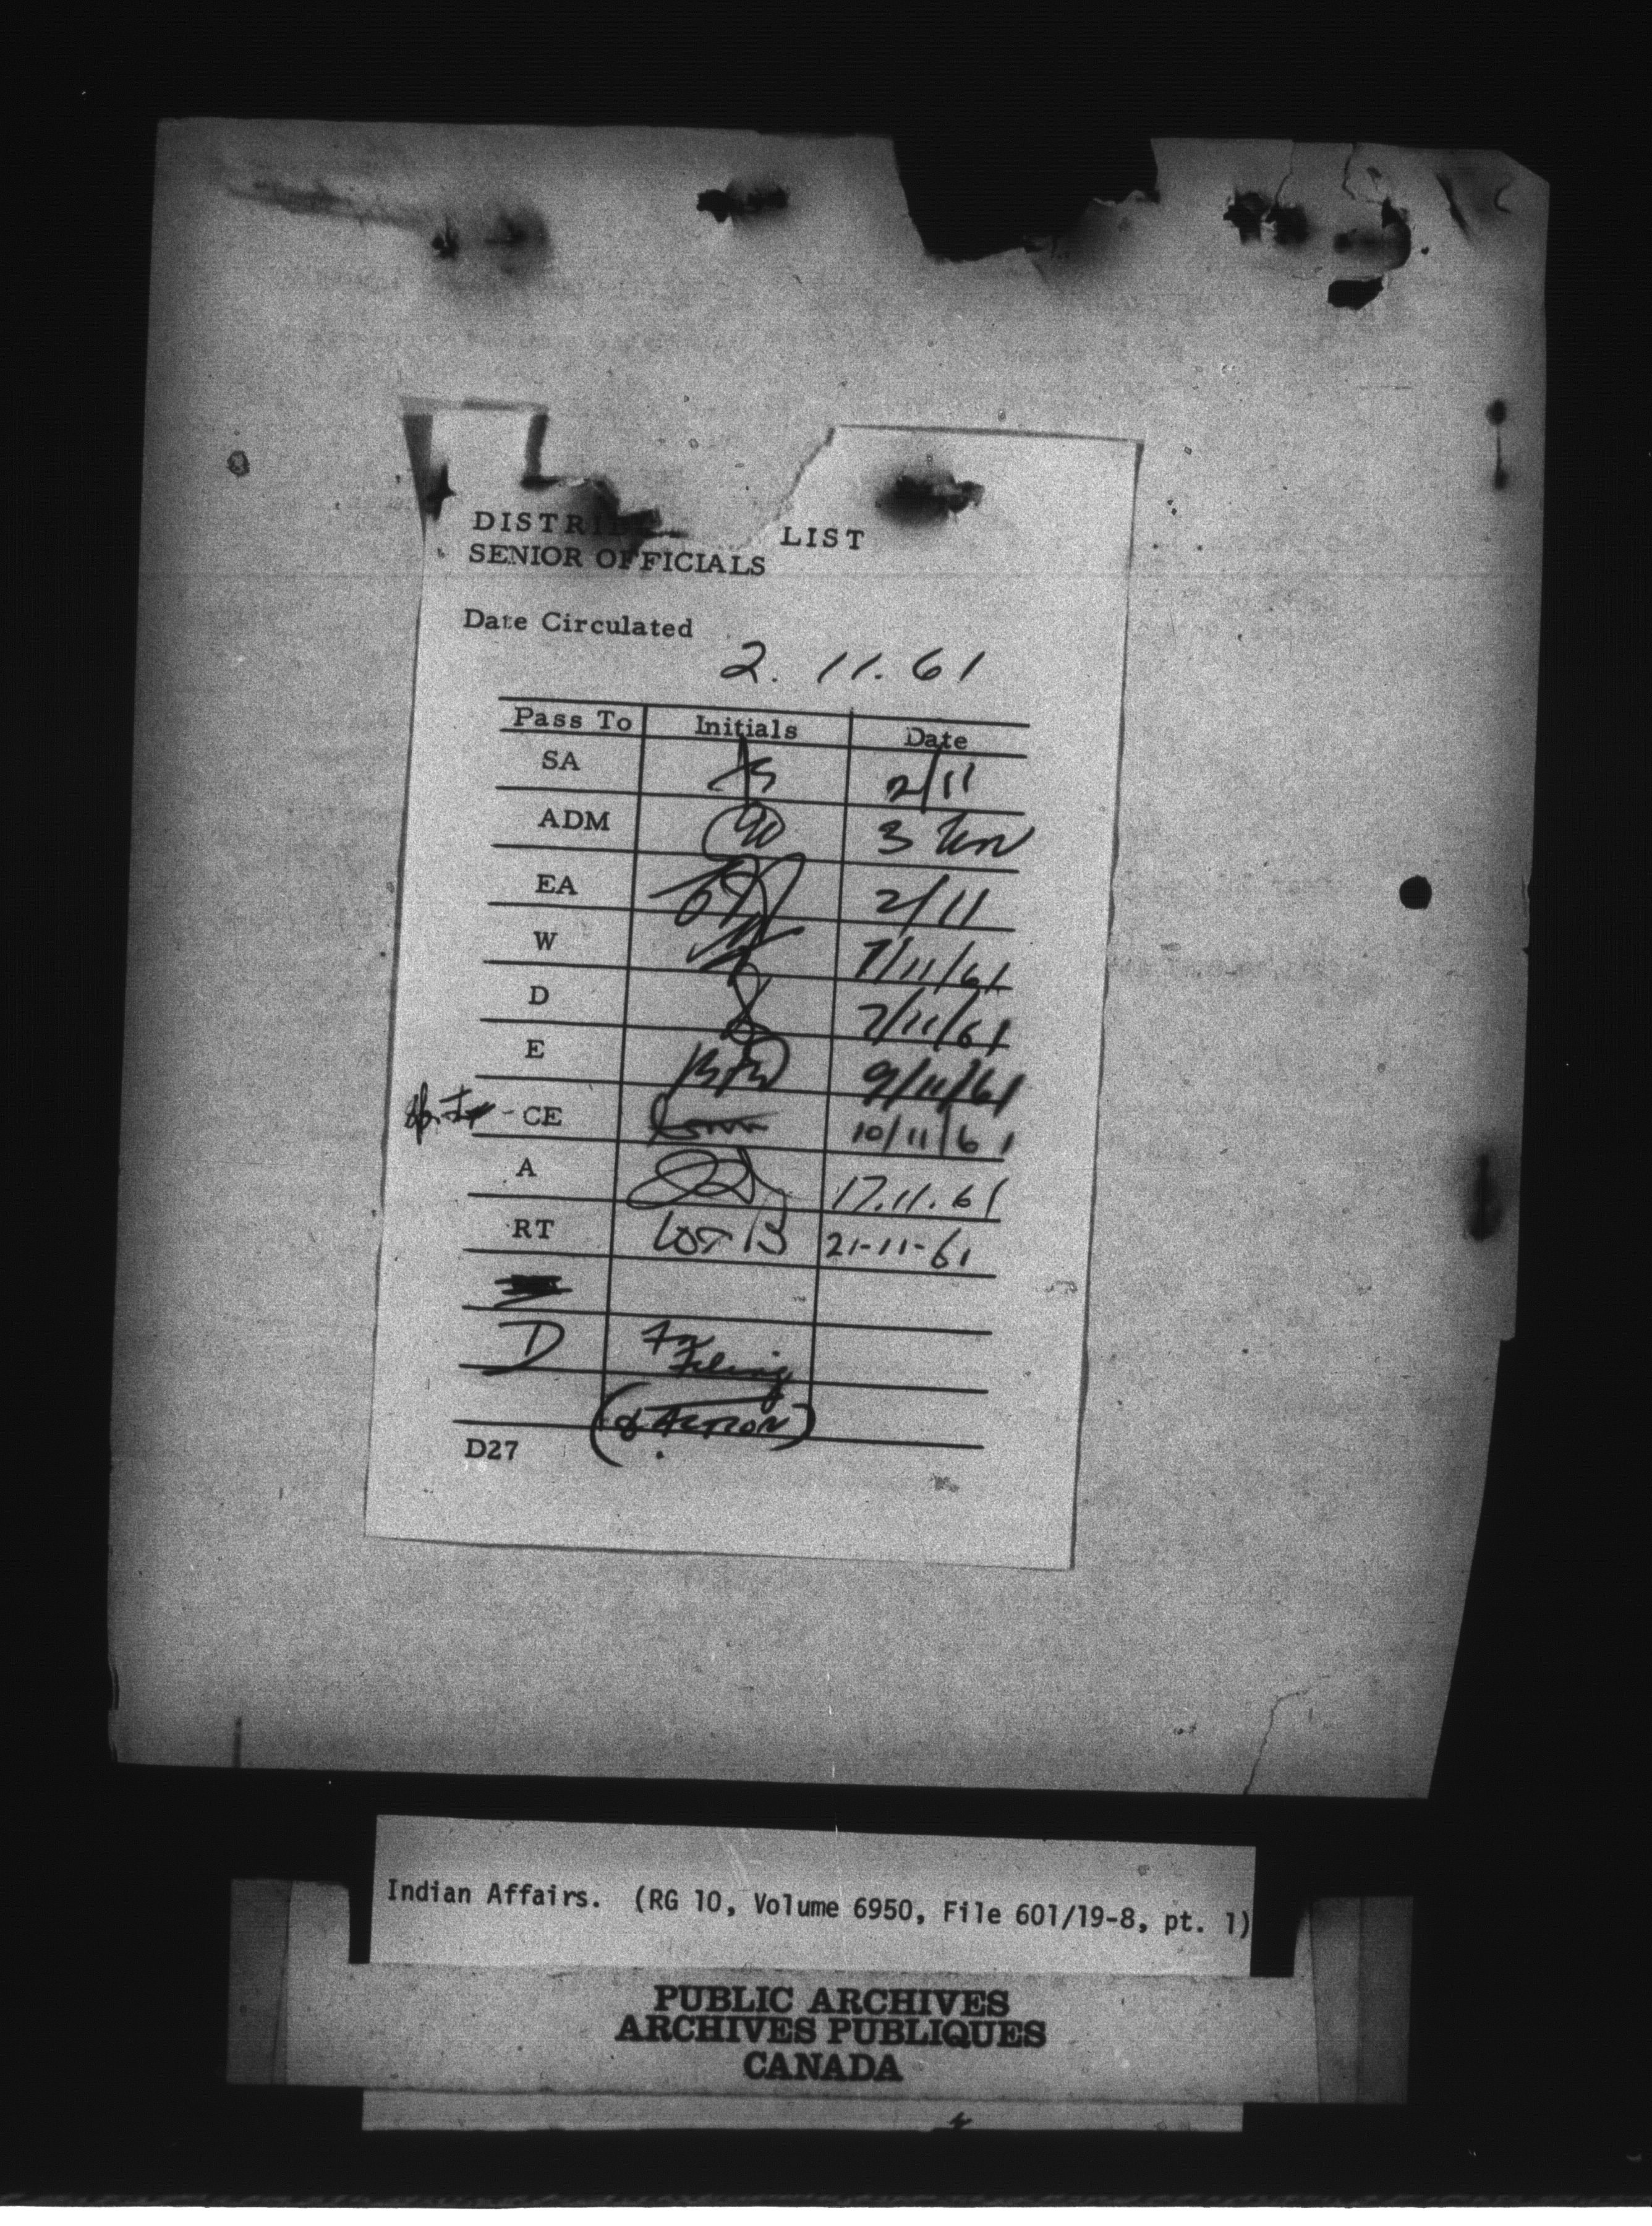 DISTRIB LIST
SENIOR OFFICIALS
Date Circulated
2. 11. 61
Pass To Initials Date
SA 2/11
ADM 3 Nov
EA 2/11
W 7/11/61
D 7/11/61
E 9/11/61
CE 10/11/61
A 17.11.61
RT 21-11-61
D For
Filing
(& ACTION)
D27
Indian Affairs. (RG 10, Volume 6950, File 601/19-8, pt. 1)
PUBLIC ARCHIVES
ARCHIVES PUBLIQUES
CANADA